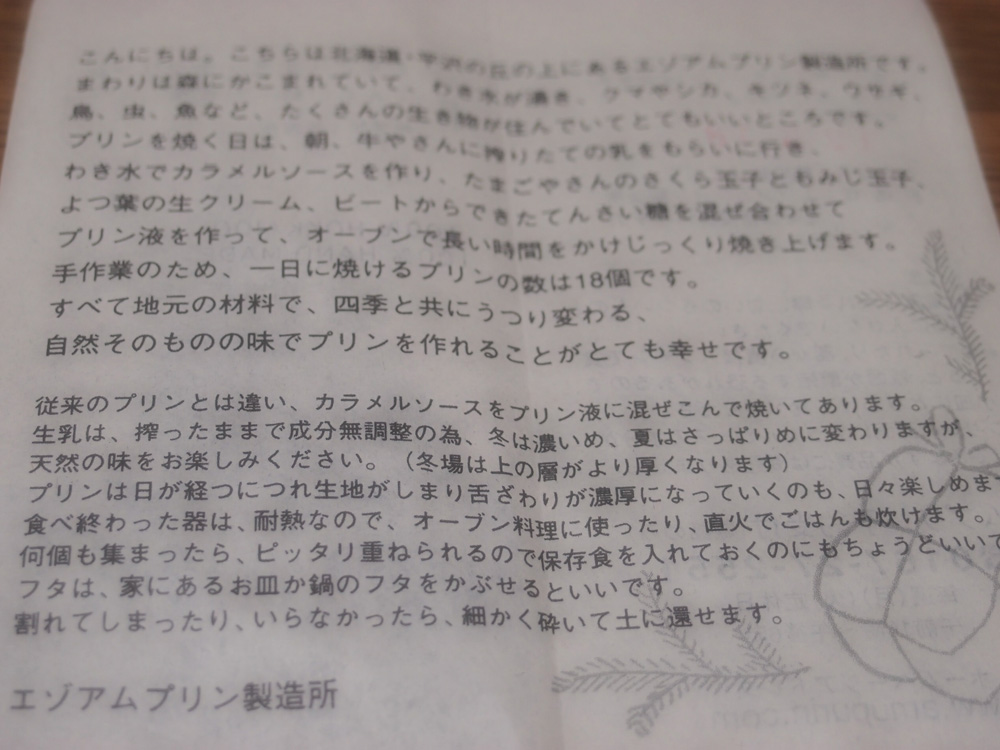 こんにちは。こちらは北海道・平沢の丘の上にあるエゾアムプリン製造所です。
まわりは森にかこまれていて、わき水が湧き、クマやシカ、キツネ、ウサギ、
鳥、虫、魚など、たくさんの生き物が住んでいてとてもいいところです。
プリンを焼く日は、朝、牛やさんに搾りたての乳をもらいに行き、
わき水でカラメルソースを作り、たまごやさんのさくら玉子ともみじ玉子、
よつ葉の生クリーム、ビートからできたてんさい糖を混ぜ合わせて
プリン液を作って、オーブンで長い時間をかけじっくり焼き上げます。
手作業のため、一日に焼けるプリンの数は18個です。
すべて地元の材料で、四季と共にうつり変わる、
自然そのものの味でプリンを作れることがとても幸せです。
従来のプリンとは違い、カラメルソースをプリン液に混ぜこんで焼いてあります。
生乳は、搾ったままで成分無調整の為、冬は濃いめ、夏はさっぱりめに変わりますが、
天然の味をお楽しみください。（冬場は上の層がより厚くなります）
プリンは日が経つにつれ生地がしまり舌ざわりが濃厚になっていくのも、日々楽しめま
食べ終わった器は、耐熱なので、オーブン料理に使ったり、直火でごはんも炊けます。
何個も集まったら、ピッタリ重ねられるので保存食を入れておくのにもちょうどいいで
フタは、家にあるお皿か鍋のフタをかぶせるといいです。
割れてしまったり、いらなかったら、細かく砕いて土に還せます。
エゾアムプリン製造所